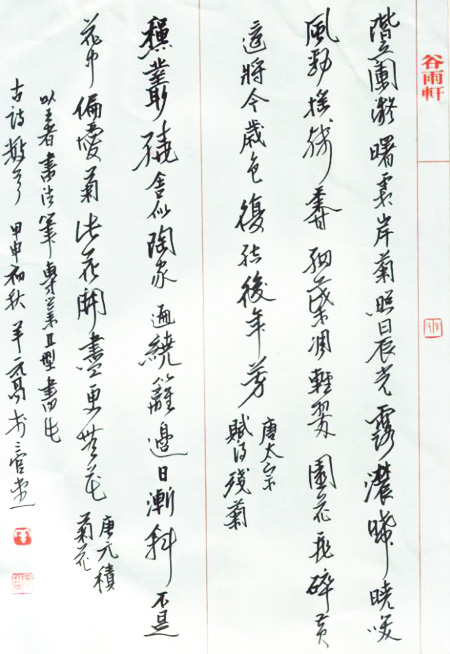 谷雨軒
階蘭凝曙霜岸菊照晨光露濃晞曉咲
風勁殘香細葉凋輕翠圓花飛碎黃
還將今歲色復結後年芳
唐太宗
賦得殘菊
穐叢繞舍似陶家遍繞籬邊日漸斜不是
花中偏愛菊此花開盡更無花
唐元稹
菊花
以王者書法筆專業Ⅱ型書此
古詩數首 甲申初秋 於三官堂